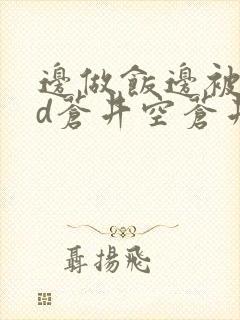 邊做飯邊被
d蒼井空蒼井
聶揚飛